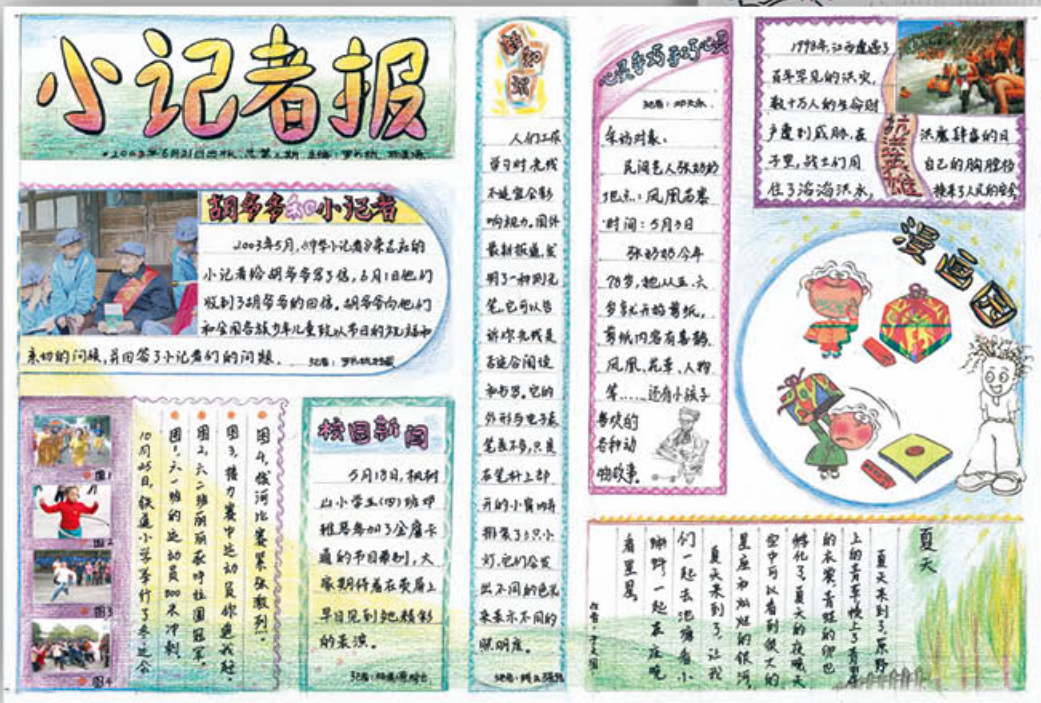 小记者报
2003年6月21日出版 总第2期 主编：
胡爷爷和小记者
2003年5月，《中华小记者》杂志社的
小记者给胡爷爷写了信，6月1日他们
收到了胡爷爷的回信。胡爷爷向他们
和全国各族少年儿童致以节日的祝福和
亲切的问候，并回答了小记者们的问题。
记者：
图1
图2
图3
图4
10月25日，铁道小学举行了冬运会
图1、六一班的运动员800米冲刺。
图2、六二班丽丽获呼拉圈冠军。
图3、接力赛中运动员你追我赶。
图4、拔河比赛紧张激烈。
校园新闻
5月18日，枫树
山小学五（四）班邓
雅思参加了金鹰卡
通的节目录制，大
家期待着在荧屏上
早日见到她精彩
的表演。
记者：
人们工作
学习时光线
不适宜会影
响视力。国外
最新报道，发
明了一种测光
笔，它可以告
诉你光线是
否适合阅读
和书写。它的
外形与电子表
笔差不多，只是
在笔杆上部
开的小窗内并
排装了3只小
灯，它们会发
出不同的色彩
来表示不同的
照明度。
心灵手巧
记者：邓天
采访对象：
民间艺人张奶奶
地点：凤凰古寨
时间：5月3日
张奶奶今年
78岁，她从五、六
岁就开始剪纸，
剪纸内容有喜鹊、
凤凰、花草、人物
等……，还有小孩子
喜欢的
各种动
物故事。
抗洪英雄
1998年，江西遭遇了
百年罕见的洪灾，
数十万人的生命财
产遭到威胁。在
洪魔肆虐的日
子里，战士们用
自己的胸膛挡
住了滔滔洪水，
换来了人民的安全
漫画园
夏天
夏天来到了，原野
上的青草换上了青翠
的衣裳，青蛙的卵也
孵化了。夏天的夜晚，天
空中可以看到很大的
星座和灿烂的银河。
夏天来到了，让我
们一起去池塘看小
蝌蚪，一起在夜晚
看星星。
作者：